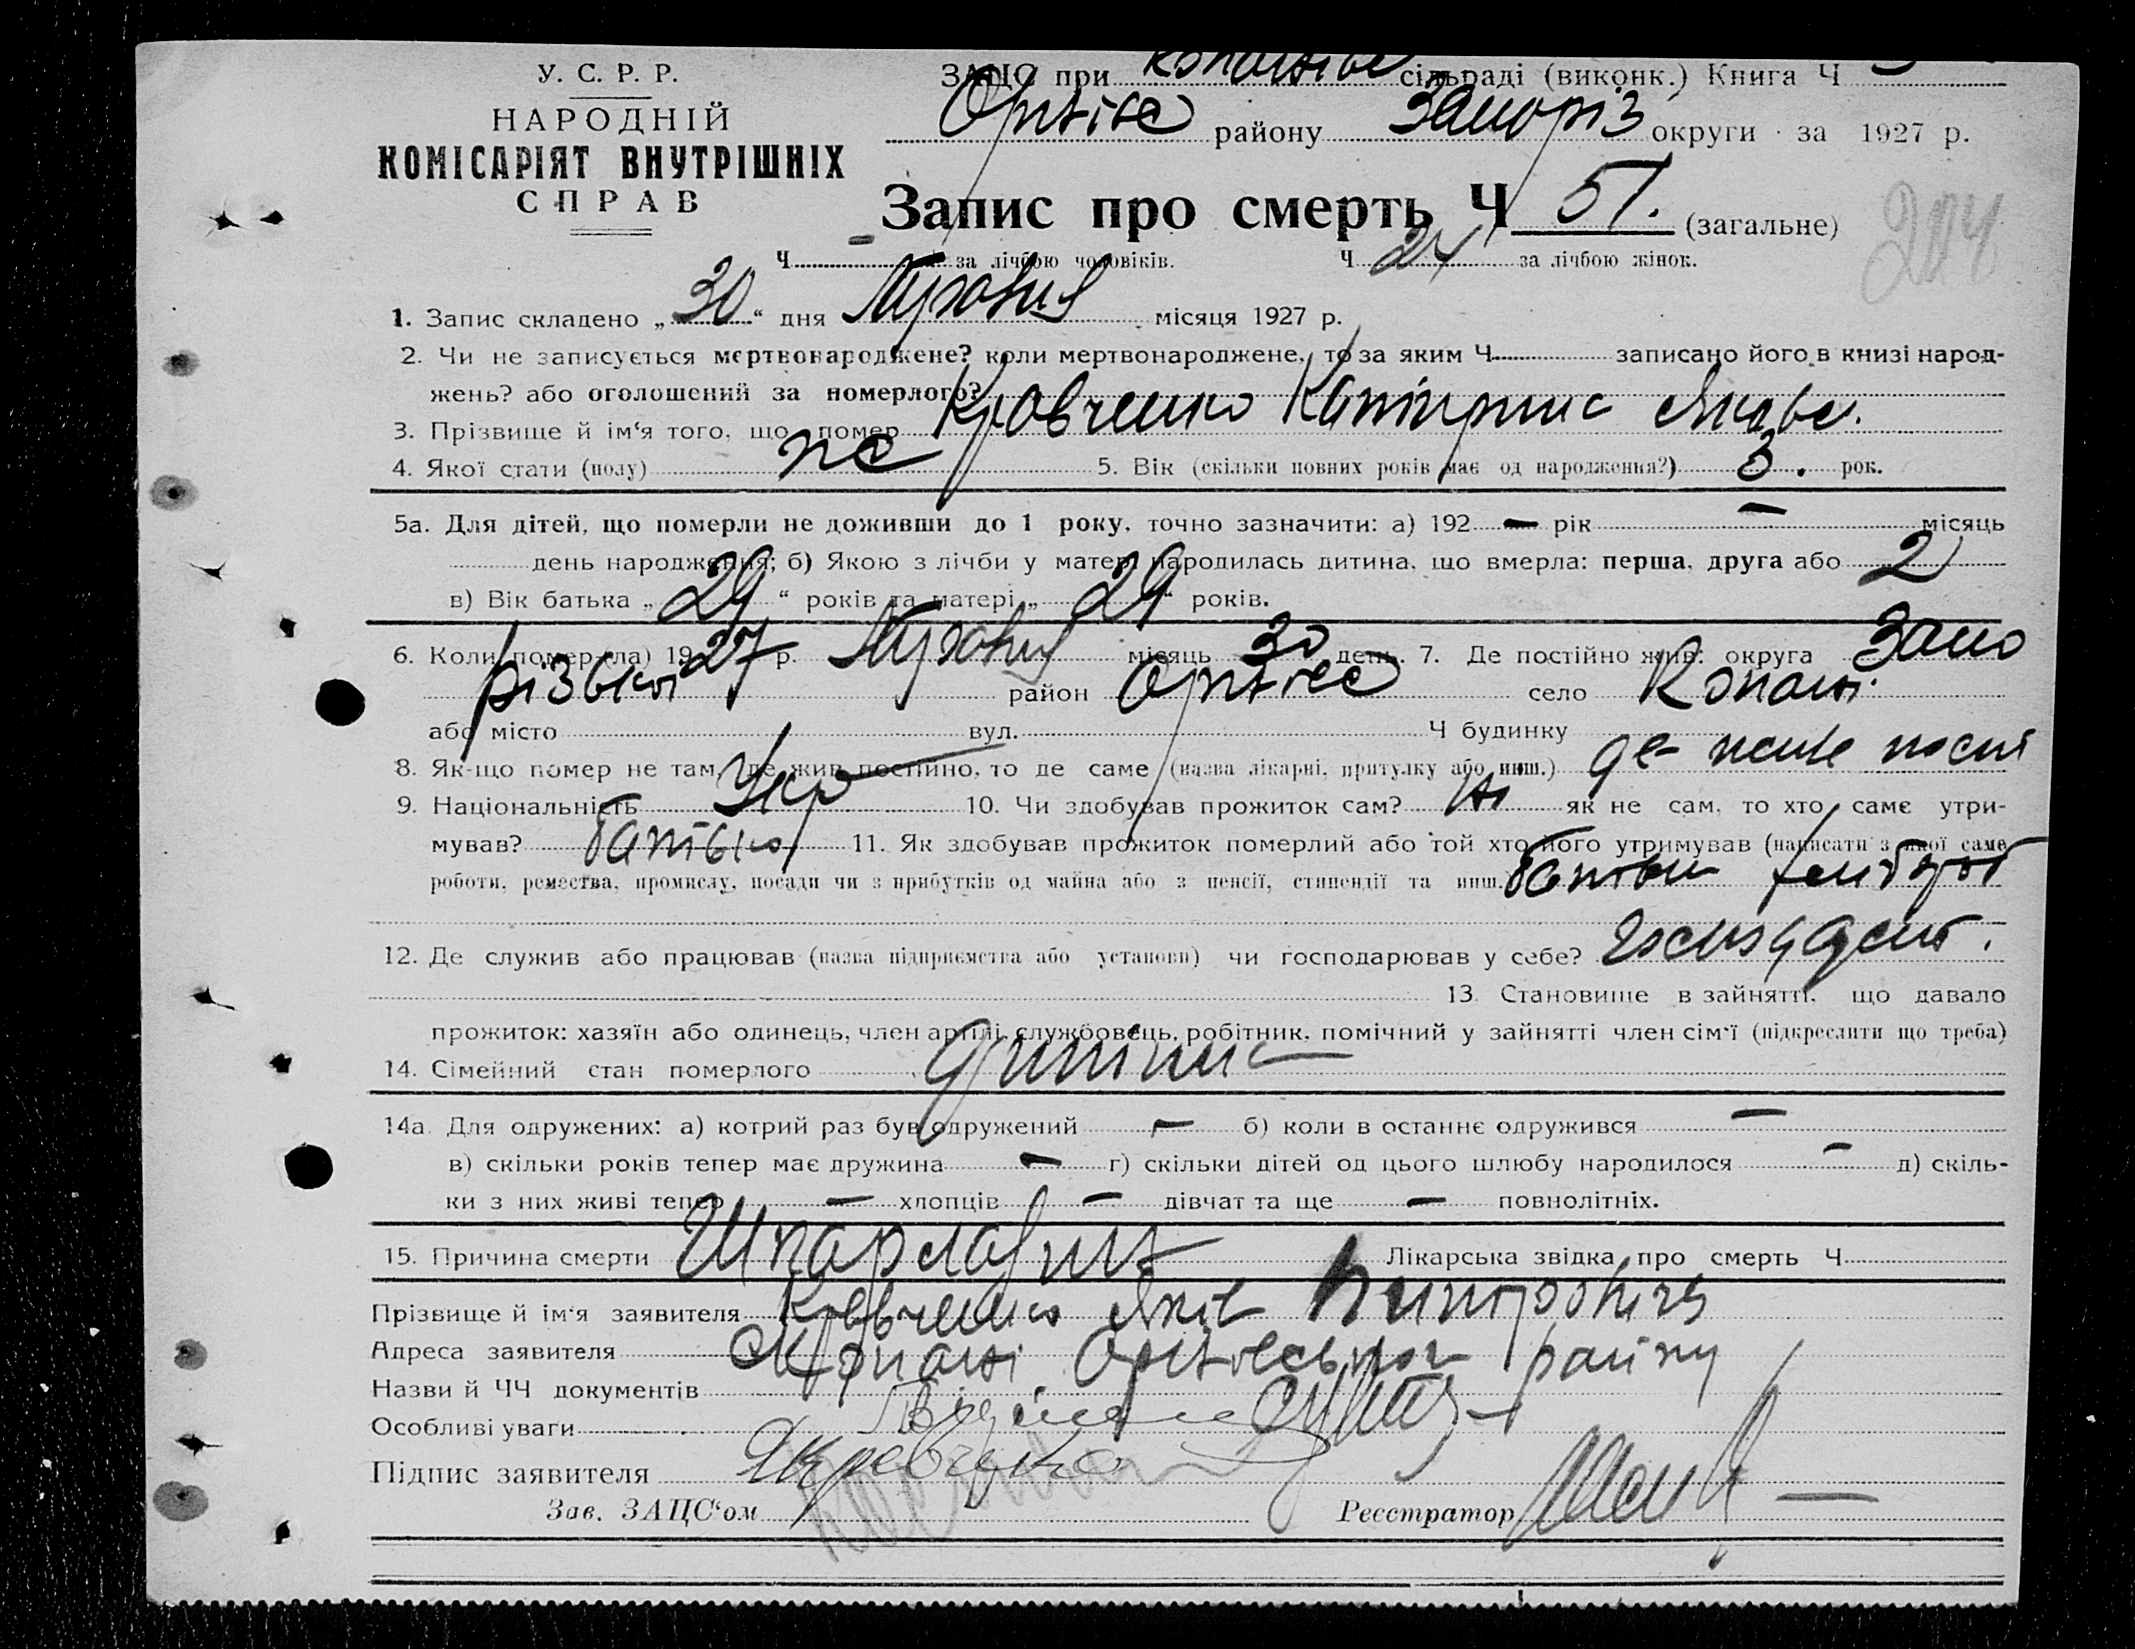 У. С. Р. Р.
НАРОДНІЙ
КОМІСАРІЯТ ВНУТРІШНІХ
СПРАВ
ЗАПС при сільраді (виконк.) Книга Ч
Оріхів району Запоріз округи за 1927 р.
Запис про смерть Ч 51. (загальне)
204
Ч – за лічбою чоловіків. Ч 24 за лічбою жінок.
1. Запис складено „30“ дня Травня місяця 1927 р.
2. Чи не записується мертвонароджене? коли мертвонароджене, то за яким Ч записано його в книзі народ-
жень? або оголошений за померлого?
3. Прізвище й ім‘я того, що помер Кравченко Катирина Яковл.
4. Якої стати (полу) жс 5. Вік (скільки повних років має од народження?) 3. рок.
5а. Для дітей, що померли не доживши до 1 року, точно зазначити: а) 192 – рік – місяць
день народження; б) Якою з лічби у матері народилась дитина, що вмерла: перша, друга або 2
в) Вік батька „29“ років та матері „29“ років.
6. Коли помер(ла) 1927 р. Травня місяць 30 день. 7. Де постійно жив: округа Запо
різької район Оріхів село Копані
або місто вул. Ч будинку
8. Як-що помер не там, де жив постійно, то де саме (назва лікарні, притулку або инш.) де жив пост
9. Національність Укр 10. Чи здобував прожиток сам? Ні як не сам, то хто саме утри-
мував? батько 11. Як здобував прожиток померлий або той хто його утримував (написати з якої саме
роботи, ремества, промислу, посади чи з прибутків од майна або з пенсії, стипендії та инш.) батько хлібороб
12. Де служив або працював (назва підприємства або установи) чи господарював у себе?
13. Становище в зайнятті, що давало
прожиток: хазяїн або одинець, член артілі, службовець, робітник, помічний у зайнятті член сім‘ї (підкреслити що треба)
14. Сімейний стан померлого дитина
14а. Для одружених: а) котрий раз був одружений – б) коли в останнє одружився –
в) скільки років тепер має дружина – г) скільки дітей од цього шлюбу народилося – д) скіль-
ки з них живі тепер – хлопців – дівчат та ще – повнолітніх.
15. Причина смерти Шкарлатина Лікарська звідка про смерть Ч
Прізвище й ім‘я заявителя Кравченко Яків Дмитрович
Адреса заявителя с Копані Оріхівського району
Назви й ЧЧ документів
Особливі уваги
Підпис заявителя Якравченко
Зав. ЗАПС‘ом Реєстратор